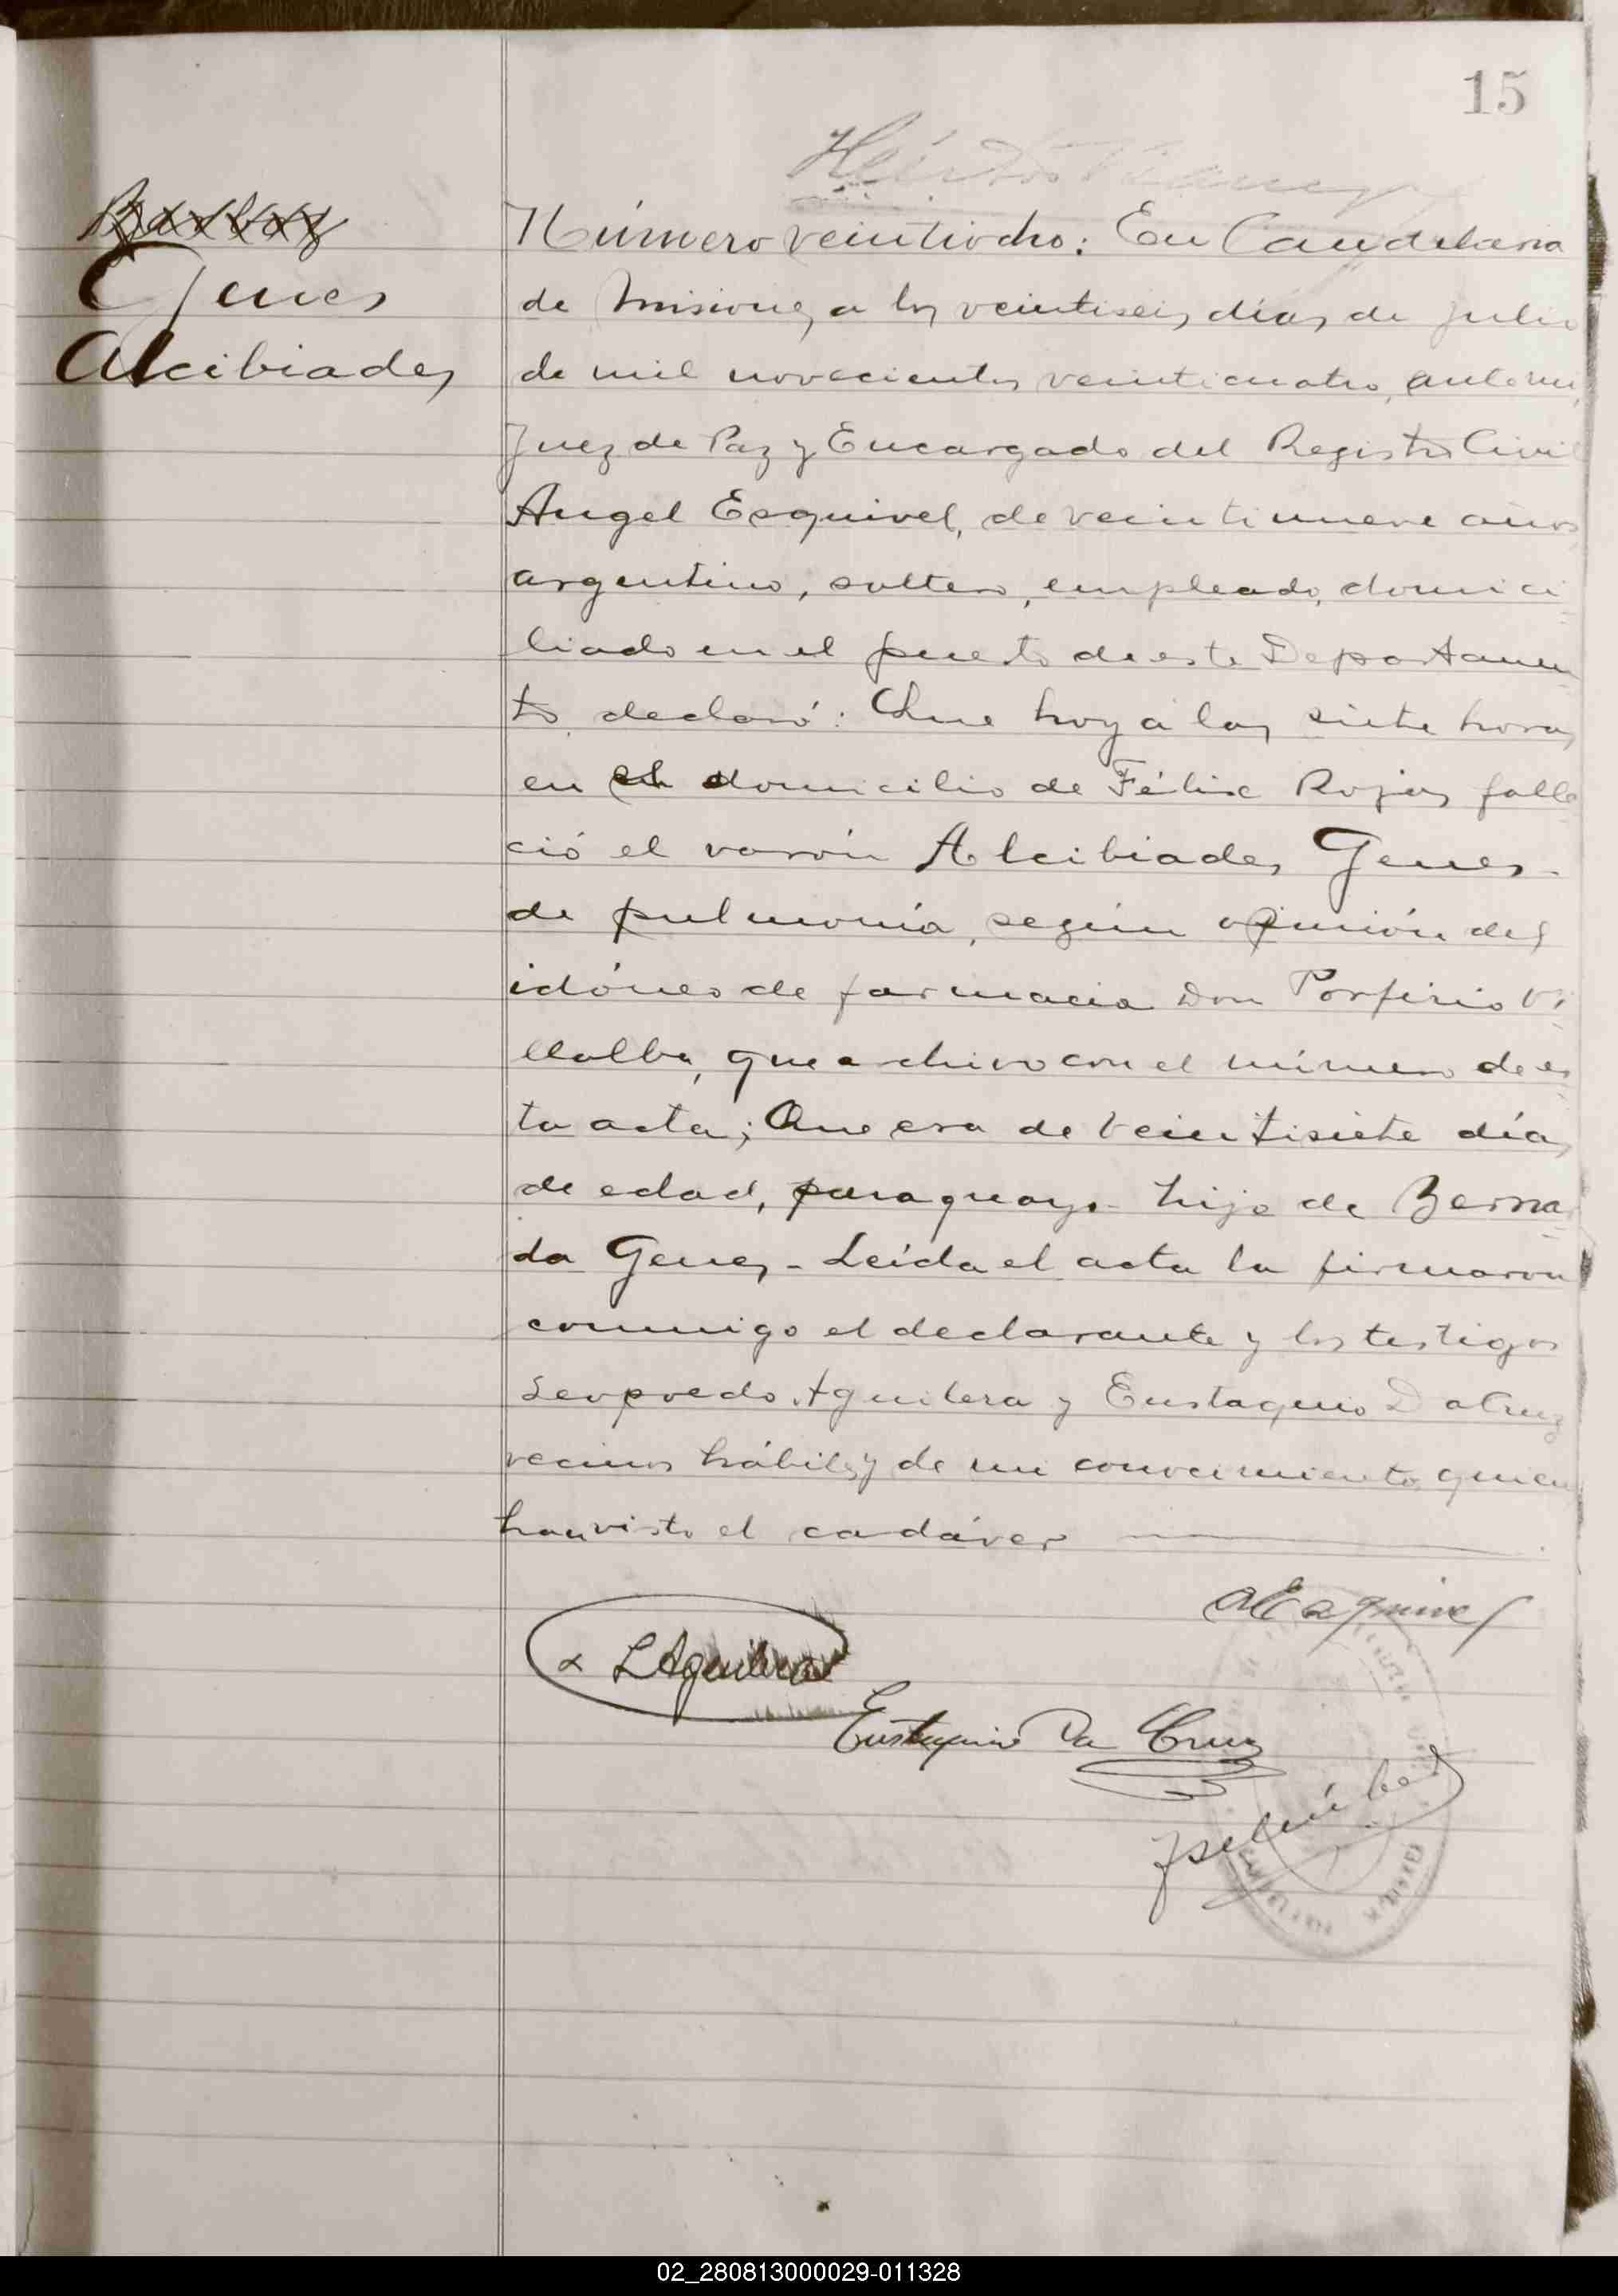 15
Genes
Alcibiades
Número veintiocho: En Candelaria
de Misiones, a los veintiseis días de julio
de mil novecientos veinticuatro, ante mi,
Juez de Paz y Encargado del Registro Civil
Angel Esquivel, de veintinueve años
argentino, soltero, empleado, domici
liado en el puerto de este Departamen
to, declaró: Que hoy a las siete horas
en el domicilio de Félix Rojas falle
ció el varón Alcibiades Genes
de pulmonía, según opinión del
idóneo de farmacia Don Porfirio Vi
llalba, que archivo con el número de es
ta acta; Que era de veintisiete días
de edad, paraguayo - hijo de Bernar
da Genes - Leída el acta la firmaron
conmigo el declarante y los testigos
Leopoedo Aguilera y Eustaquio Da Cruz
vecinos hábiles y de mi conocimiento, quien
han visto el cadáver
A Esquivel
x L Aguilera
Eustaquio Da Cruz
02_280813000029-011328